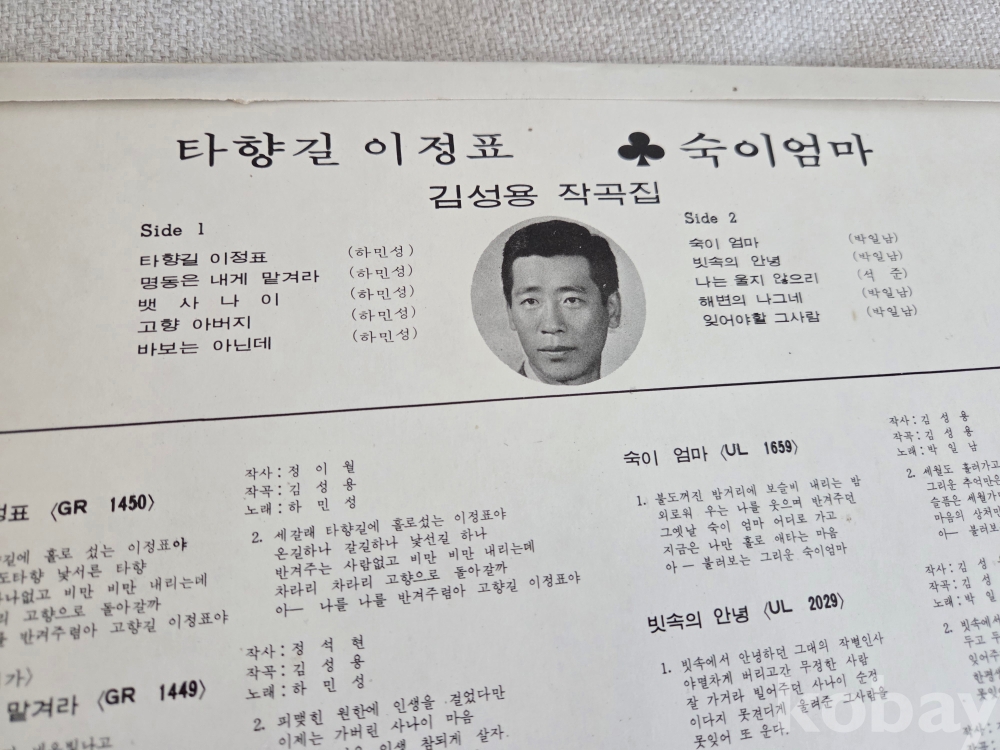 타향길 이정표 ♣ 숙이엄마
김성용 작곡집
Side 1
타향길 이정표 (하민성)
명동은 내게 맡겨라 (하민성)
뱃사나이 (하민성)
고향 아버지 (하민성)
바보는 아닌데 (하민성)
Side 2
숙이 엄마 (박일남)
빗속의 안녕 (박일남)
나는 울지 않으리 (석 준)
해변의 나그네 (박일남)
잊어야할 그사람 (박일남)
정표 〈GR 1450〉
길에 홀로 섰는 이정표야
도타향 낯서른 타향
나없고 비만 비만 내리는데
리 고향으로 돌아갈까
를 반겨주렴아 고향길 이정표야
가〉
맡겨라 〈GR 1449〉
작사:정이월
작곡:김성용
노래:하민성
2. 세갈래 타향길에 홀로섰는 이정표야
온길하나 갈길하나 낯선길 하나
반겨주는 사람없고 비만 비만 내리는데
차라리 차라리 고향으로 돌아갈까
아— 나를 나를 반겨주렴아 고향길 이정표야
작사:정석현
작곡:김성용
노래:하민성
2. 피맺힌 원한에 인생을 걸었다만
이제는 가버린 사나이 마음
인생 참되게 살자.
숙이 엄마 〈UL 1659〉
1. 불도꺼진 밤거리에 보슬비 내리는 밤
외로워 우는 나를 웃으며 반겨주던
그옛날 숙이 엄마 어디로 가고
지금은 나만 홀로 애타는 마음
아— 불러보는 그리운 숙이엄마
빗속의 안녕 〈UL 2029〉
1. 빗속에서 안녕하던 그대의 작별인사
야멸차게 버리고간 무정한 사람
잘 가거라 빌어주던 사나이 순정
이다지 못견디게 울려준 그사람을
못잊어 또 운다.
작사:김성용
작곡:김성용
노래:박일남
2. 세월도 흘러가고
그리운 추억만은
슬픔은 세월가
마음의 상처만
아— 불러보
작사:김성
작곡:김성
노래:박일
2. 빗속에서
두고
잊어주
한평생
못잊
kobay